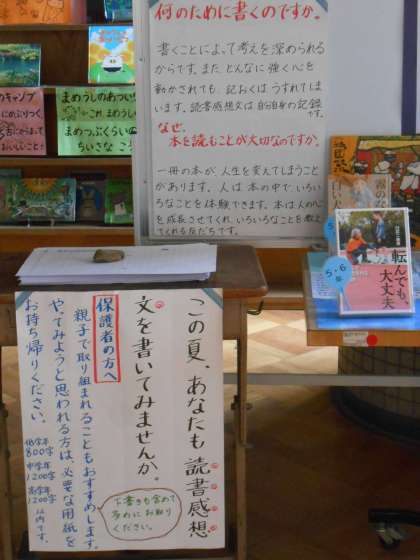 何のために書くのですか。
書くことによって考えを深められる
からです。また、どんなに強く心を
動かされても、記おくはうすれてしま
います。読書感想文は自分自身の記録
です。
なぜ、
本を読むことが大切なのですか。
一冊の本が、人生を変えてしまうこと
があります。人は本の中で、いろい
ろなことを体験できます。本は人の心
を成長させてくれ、いろいろなことを教え
てくれる友だちです。
まめうしのあついな
まめつぶくらいの
ちいさな こ
転んでも、
大丈夫
5・6
この夏、あなたも読書感想
文を書いてみませんか。
保護者の方へ
親子で取り組まれることもおすすめします。
やってみようと思われる方は、必要な用紙を
お持ち帰りください。
低学年
800字
中学年
1200字
高学年
1200字
以内です。
下書きも含めて
多めにお取り
ください。